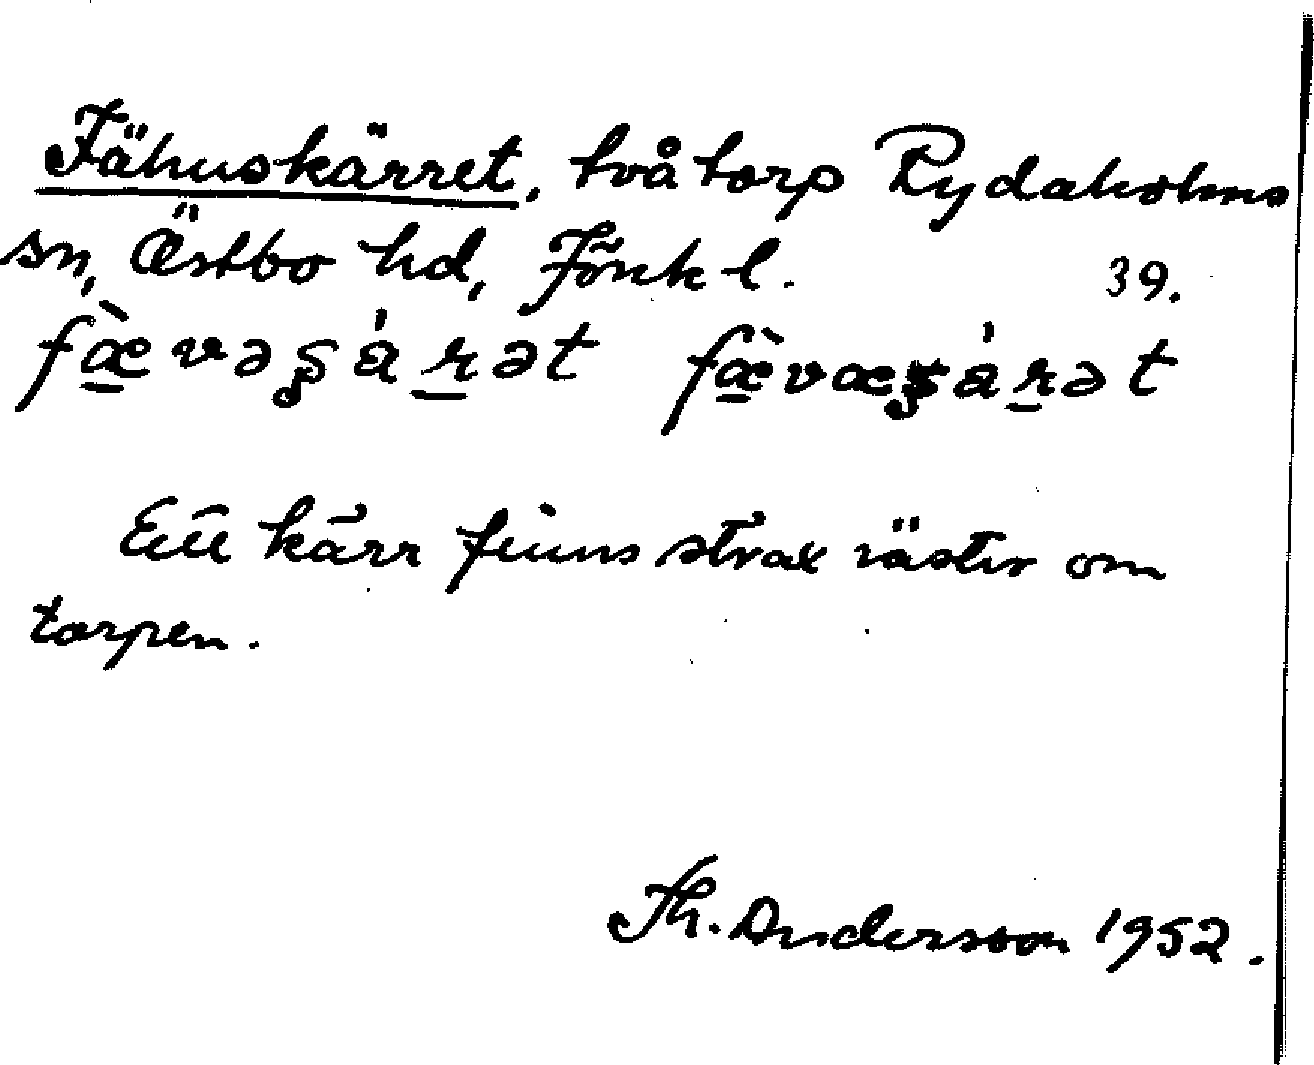 Fähuskärret, två torp Rydaholms
sn, Östbo hd, Jönk l. 39.
Ett kärr finns strax väster om
torpen.
Th. Andersson 1952.